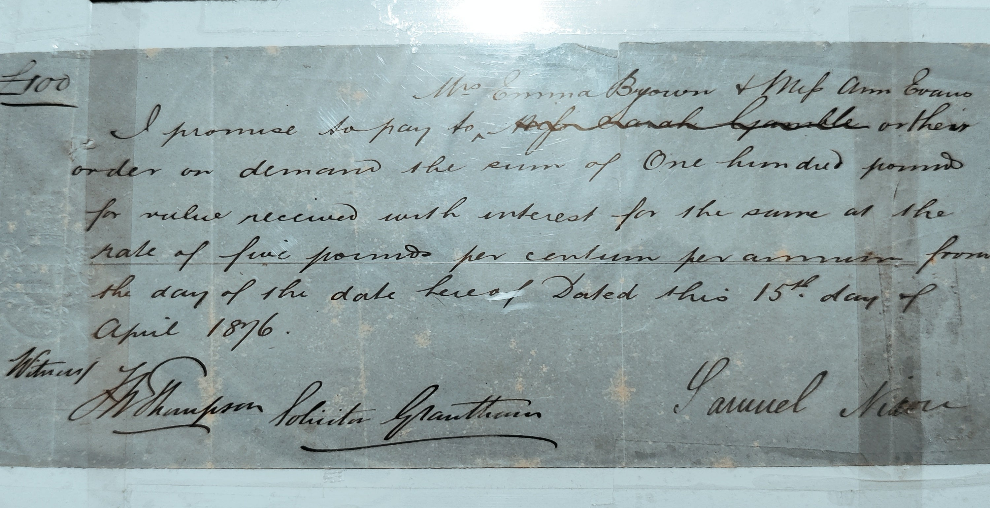 £100
Mrs Emma Brown & Miss Ann Evans
I promise to pay to ‸ Sarah Gamble or their
order on demand the sum of One hundred pounds
for value received with interest for the same at the
rate of five pounds per centum per annum from
the day of the date hereof Dated this 15th. day of
April 1876.
Witness
Thompson Solicitor Grantham
Samuel Nixon